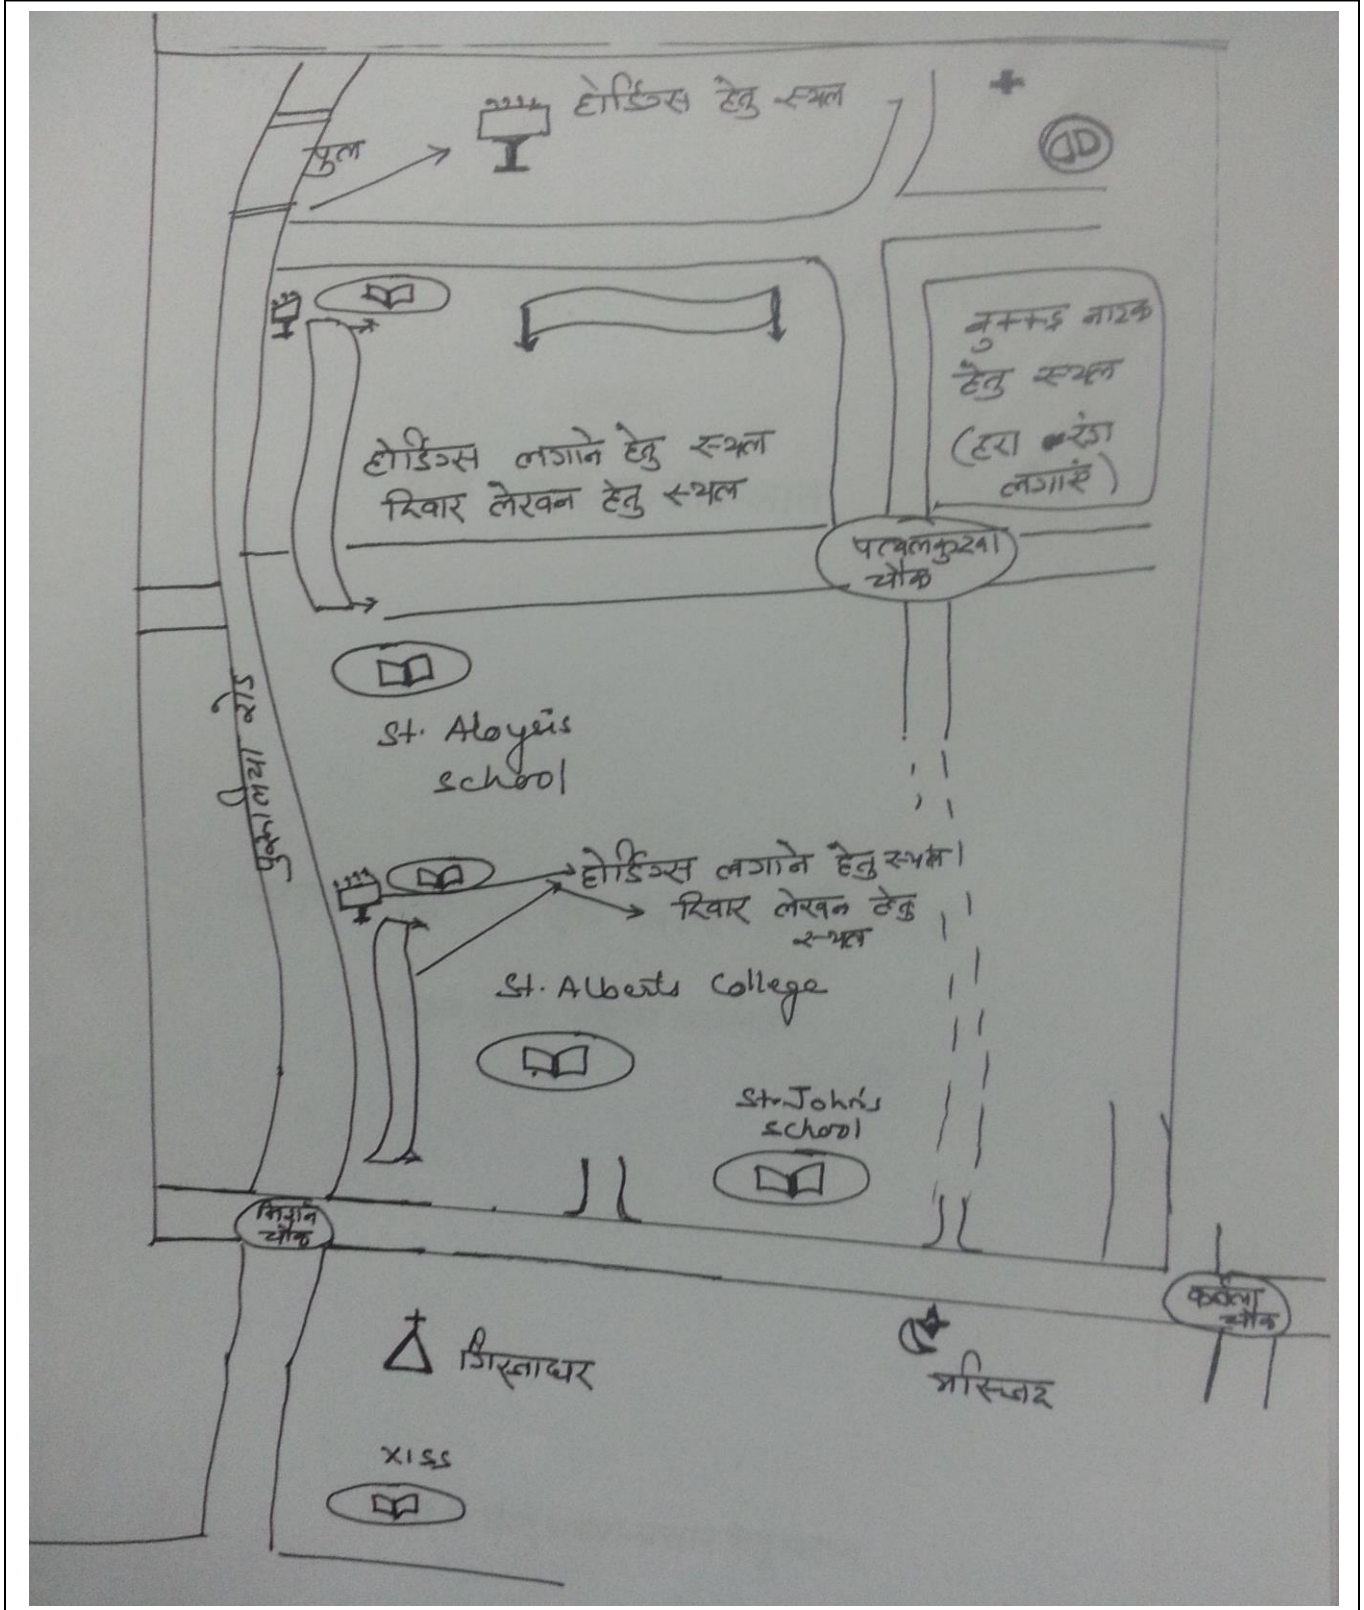 होर्डिंग्स हेतु स्थल
पुल
नुक्कड़ नाटक
हेतु स्थल
(हरा रंग
लगाएं)
होर्डिंग्स लगाने हेतु स्थल
दिवार लेखन हेतु स्थल
पत्थलकुदवा
चौक
St. Aloysis
school
पुरुलिया रोड
होर्डिंग्स लगाने हेतु स्थल
दिवार लेखन हेतु
स्थल
St. Alberts College
St. John's
school
मिशन
चौक
कर्बला
चौक
गिरजाघर
मस्जिद
XISS